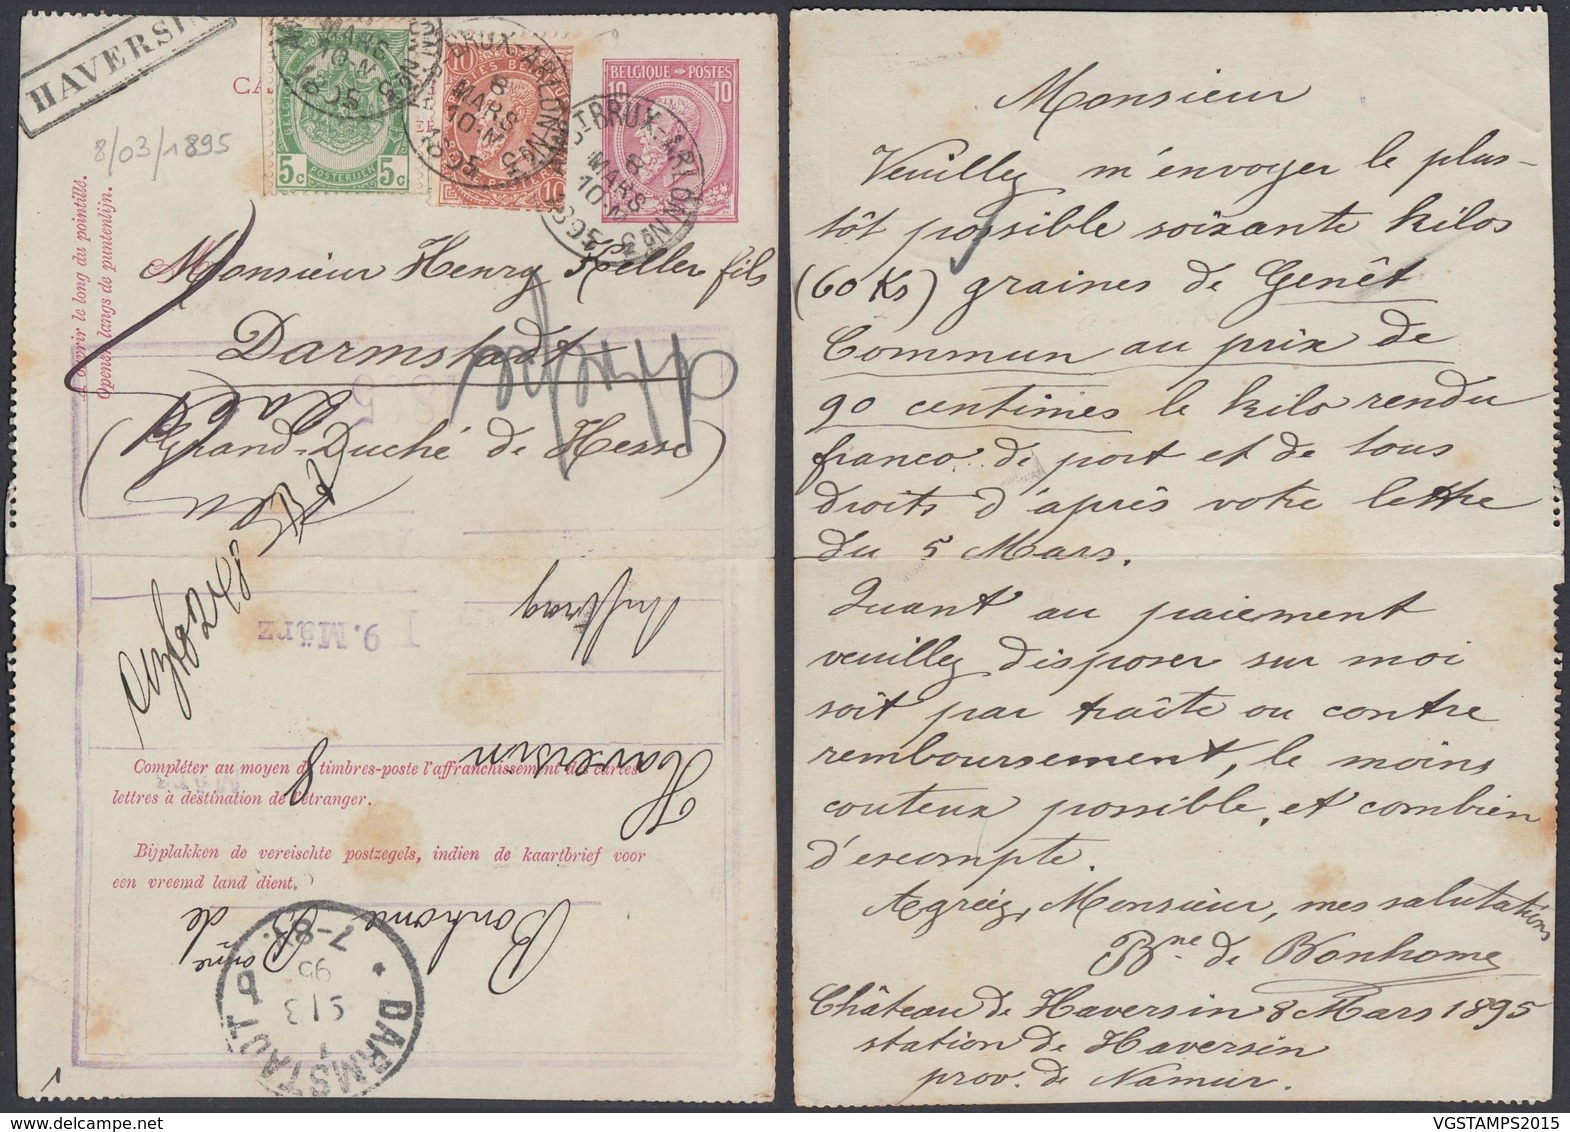 HAVERSIN
8/03/1895
5c POSTERIJEN 5c
10 10
BRUX-ARLON
8
MARS
10-N
1895
BELGIQUE POSTES
10 10
BRUX-ARLON
8
MARS
10-N
1895
A ouvrir le long du pointillé.
Openen langs de puntenlijn.
Monsieur Henry Keller fils
Darmstadt
(Grand-Duché de Hesse)
9. März
Auftrag
Haversin
8
Compléter au moyen de timbres-poste l'affranchissement des cartes-
lettres à destination de l'étranger.
Bijplakken de vereischte postzegels, indien de kaartbrief voor
een vreemd land dient.
Bonhome
Bonne de
DARMSTADT
95
7-8
Monsieur
Veuillez m'envoyer le plus-
tôt possible soixante kilos
(60 Ks) graines de Genêt
Commun au prix de
90 centimes le kilo rendu
franco de port et de tous
droits d'après votre lettre
du 5 Mars.
Quant au paiement
veuillez disposer sur moi
soit par traîte ou contre
remboursement, le moins
couteux possible, et combien
d'escompte.
Agréez, Monsieur, mes salutations
Bne de Bonhome
Château de Haversin 8 Mars 1895
station de Haversin
prov. de Namur.
VGSTAMPS2015